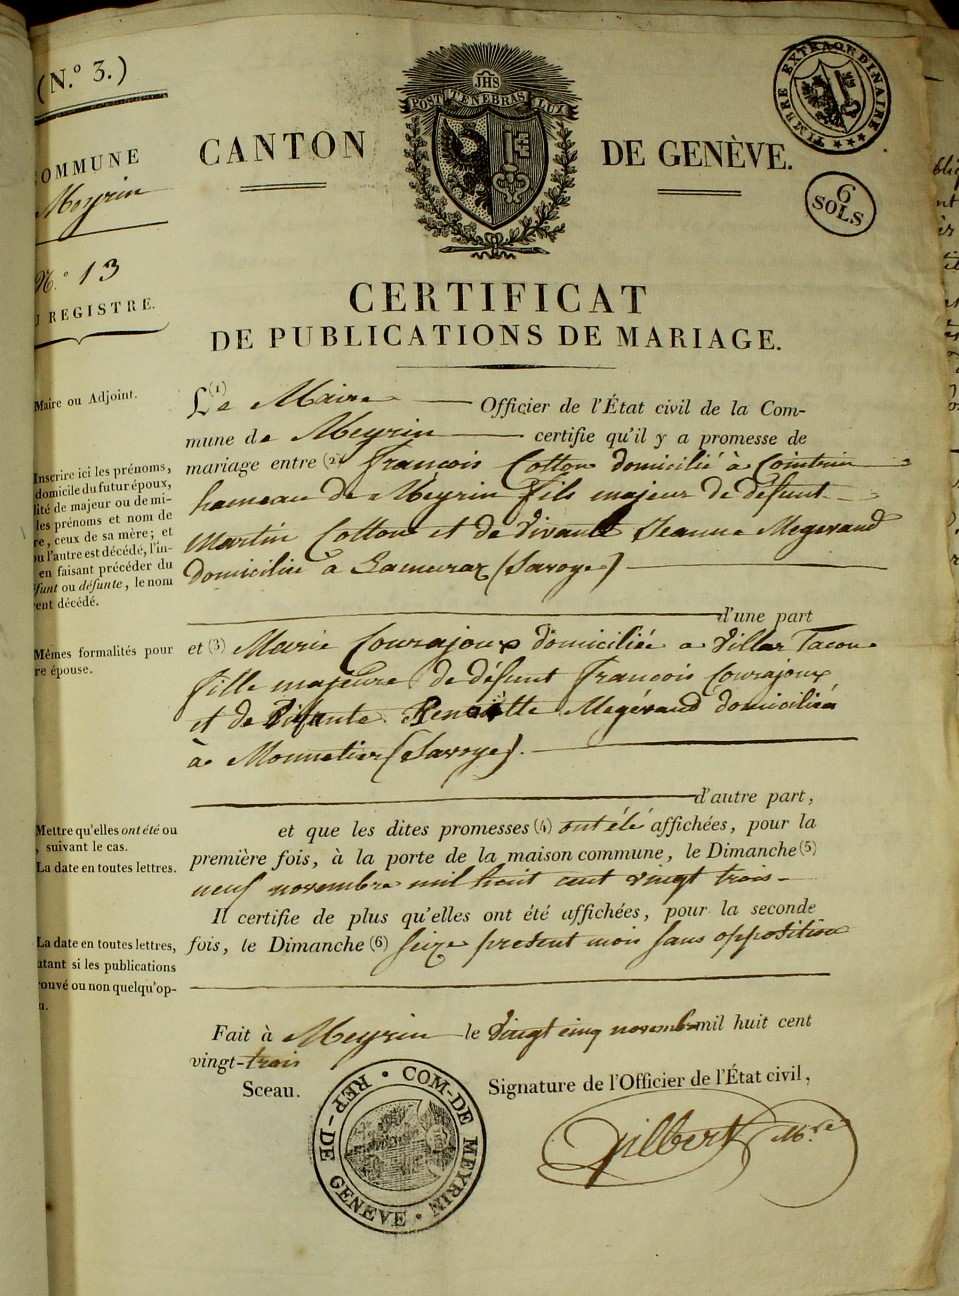 (N.º 3.)
COMMUNE
Meyrin
N.º 13
REGISTRE.
JHS
POST TENEBRAS LUX
CANTON DE GENÈVE.
TIMBRE EXTRAORDINAIRE
6
SOLS
CERTIFICAT
DE PUBLICATIONS DE MARIAGE.
Maire ou Adjoint.
Le (1) Maire Officier de l'État civil de la Com-
mune de Meyrin certifie qu'il y a promesse de
mariage entre (2) François Cotton domicilié à Cointrin
hameau de Meyrin fils majeur de défunt
Martin Cotton et de vivante Jeanne Megevand
domiciliée à Lamuraz (Savoye)
d'une part
Inscrire ici les prénoms,
domicile du futur époux,
lité de majeur ou de mi-
les prénoms et nom de
re, ceux de sa mère; et
ou l'autre est décédé, l'in-
en faisant précéder du
défunt ou défunte, le nom
rent décédé.
et (3) Marie Courajoux domiciliée a Villar Tacon
fille majeure de défunt François Courajoux
et de vivante Mégévand domiciliée
à Monnetier (Savoye).
d'autre part,
Mêmes formalités pour
re épouse.
et que les dites promesses (4) ont été affichées, pour la
première fois, à la porte de la maison commune, le Dimanche (5)
neuf novembre mil huit cent vingt trois
Il certifie de plus qu'elles ont été affichées, pour la seconde
fois, le Dimanche (6) seize présent mois sans opposition
Mettre qu'elles ont été ou
, suivant le cas.
La date en toutes lettres.
La date en toutes lettres,
utant si les publications
rouvé ou non quelqu'op-
n.
Fait à Meyrin le vingt cinq novembre mil huit cent
vingt-trois
Sceau.
Signature de l'Officier de l'État civil,
COM-DE MEYRIN
REP-DE GENEVE
Gilbert Mre